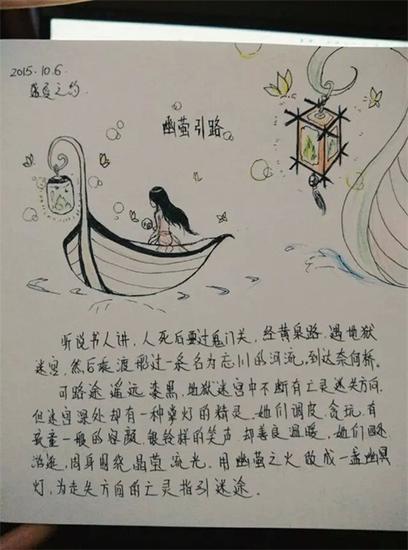 2015.10.6
盛夏之约
幽萤引路
听说书人讲，人死后要过鬼门关，经黄泉路，遇地狱
迷宫，然后乘渡那过一条名为忘川的河流，到达奈何桥。
可路途遥远漆黑，地狱迷宫中不断有亡灵迷失方向，
但迷宫深处却有一种掌灯的精灵，她们调皮，贪玩，有
孩童一般的容颜，银铃样的笑声 却善良温暖，她们
游逛，周身围绕晶莹流光，用幽萤之火做成一盏幽冥
灯，为走失方向的亡灵指引迷途。